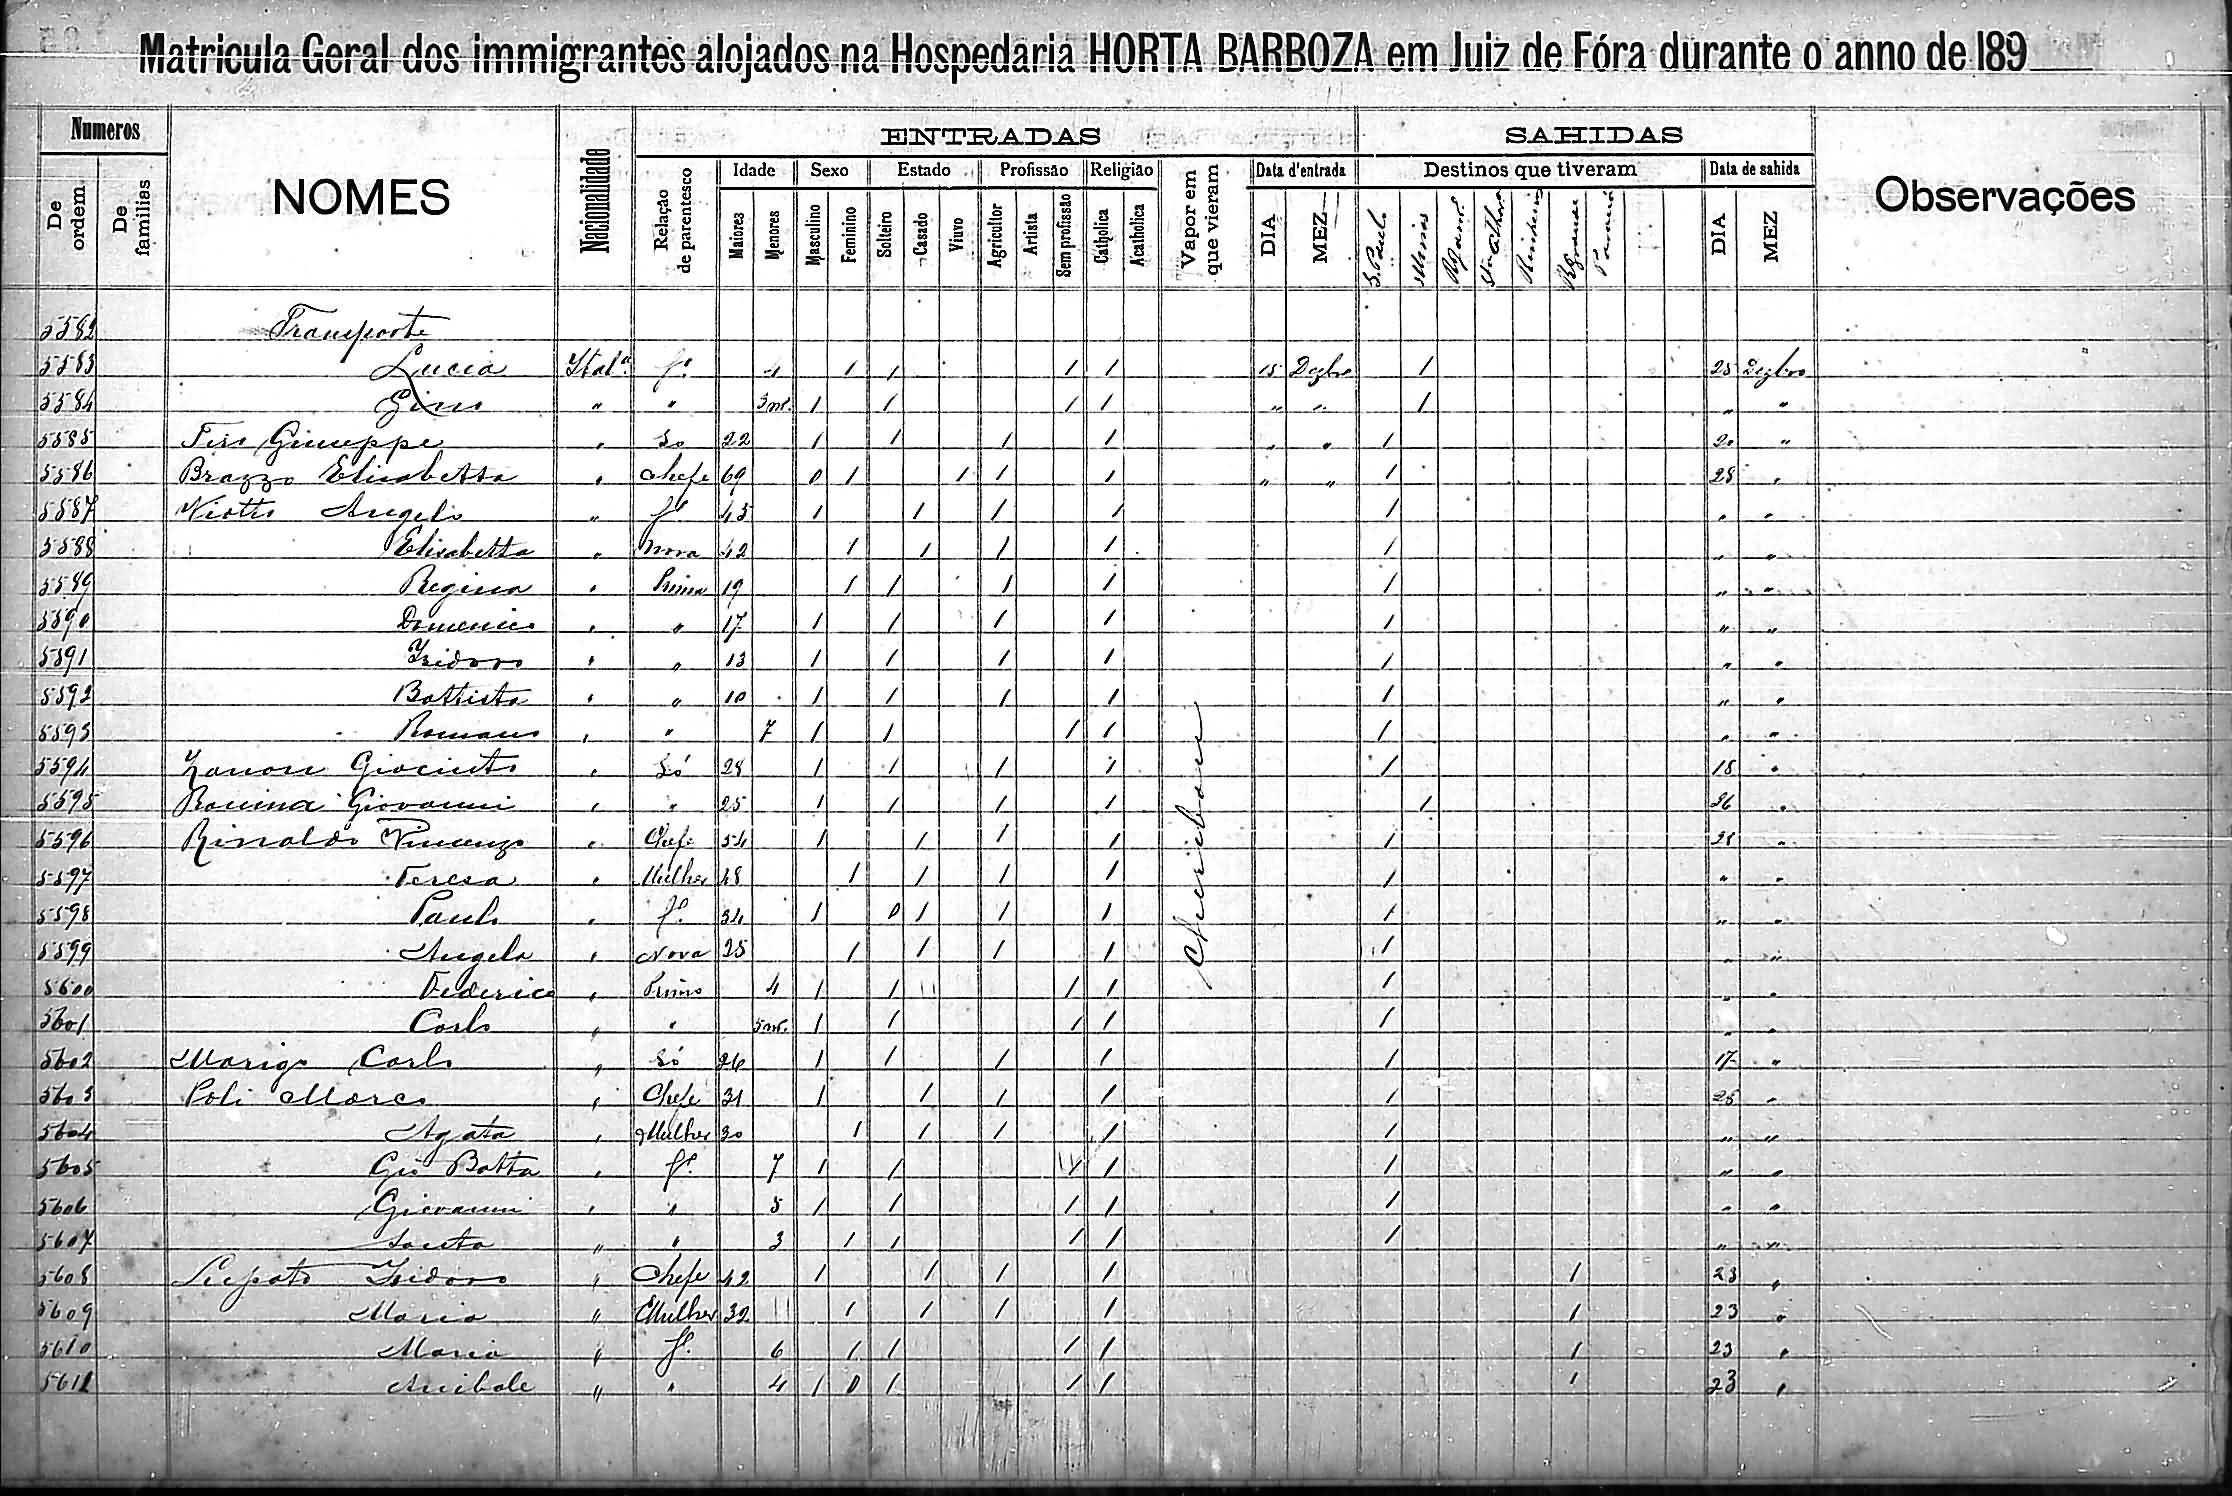 Matricula Geral dos immigrantes alojados na Hospedaria HORTA BARBOZA em Juiz de Fóra durante o anno de 189
Numeros NOMES Nacionalidade ENTRADAS SAHIDAS Observações
De ordem De familias Relação de parentesco Idade Sexo Estado Profissão Religião Vapor em que vieram Data d'entrada Destinos que tiveram Data de sahida
Maiores Menores Masculino Feminino Solteiro Casado Viuvo Agricultor Artista Sem profissão Catholica Acatholica DIA MEZ S. Paulo Minas DIA MEZ
5582 Transporte
5583 Lucia Ital.ª f.º 4 1 1 1 1 15 Dezbro 1 25 Dezbro
5584 Gino " " 3 m. 1 1 1 1 " " 1 " "
5585 Giuseppe " Só 22 1 1 1 1 " " 1 20 "
5586 Brazzo Elisabetta " Chefe 69 0 1 1 1 1 " " 1 28 "
5587 Viotto Angelo " f.º 43 1 1 1 1 1 " "
5588 Elisabetta " Nora 42 1 1 1 1 1 " "
5589 Regina " Prima 19 1 1 1 1 1 " "
5590 Domenico " " 17 1 1 1 1 1 " "
5591 Isidoro " " 13 1 1 1 1 1 " "
5592 Battista " " 10 1 1 1 1 1 " "
5593 Romano " " 7 1 1 1 1 1 " "
5594 Zanon Giacinto " Só 28 1 1 1 1 1 18 "
5595 Giovanni " " 25 1 1 1 1 1 26 "
5596 Rinaldo Vincenzo " Chefe 54 1 1 1 1 1 28 "
5597 Teresa " Mulher 48 1 1 1 1 1 " "
5598 Paulo " f.º 34 1 0 1 1 1 1 " "
5599 Angela " Nora 25 1 1 1 1 1 " "
5600 Federico " Primo 4 1 1 1 1 1 " "
5601 Carlo " " 5 m. 1 1 1 1 1 " "
5602 Marigo Carlo " Só 26 1 1 1 1 1 17 "
5603 Poli Marco " Chefe 31 1 1 1 1 1 25 "
5604 Agata " Mulher 30 1 1 1 1 1 " "
5605 Gio Batta " f.º 7 1 1 1 1 1 " "
5606 Giovanni " " 5 1 1 1 1 1 " "
5607 Santa " " 3 1 1 1 1 1 " "
5608 Isidoro " Chefe 42 1 1 1 1 1 23 "
5609 Maria " Mulher 32 1 1 1 1 1 23 "
5610 Maria " f.º 6 1 1 1 1 1 23 "
5611 Anibale " " 4 1 0 1 1 1 1 23 "